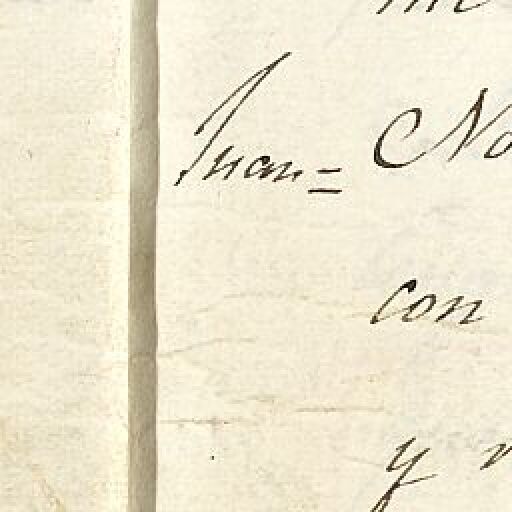 Juan= No
con
y